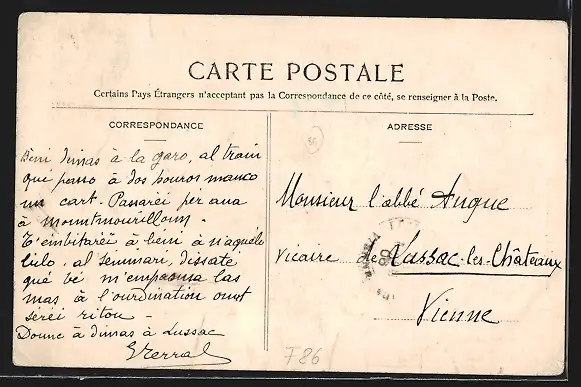 CARTE POSTALE
Certains Pays Étrangers n'acceptant pas la Correspondance de ce côté, se renseigner à la Poste.
CORRESPONDANCE
Beni dimas à la garo, al train
qui passo à dos houros manco
un cart. Passarei per ana
à mountmourilloun.
T'embitarëi à beni à naquelo
, al seminari, dissate
qué bé m'empausa las
mas à l'ourdination ount
serëi ritou -
Doune à dimas à Lussac
ADRESSE
Monsieur l'abbé Augue
Vicaire de Lussac-les-Châteaux
Vienne
F86